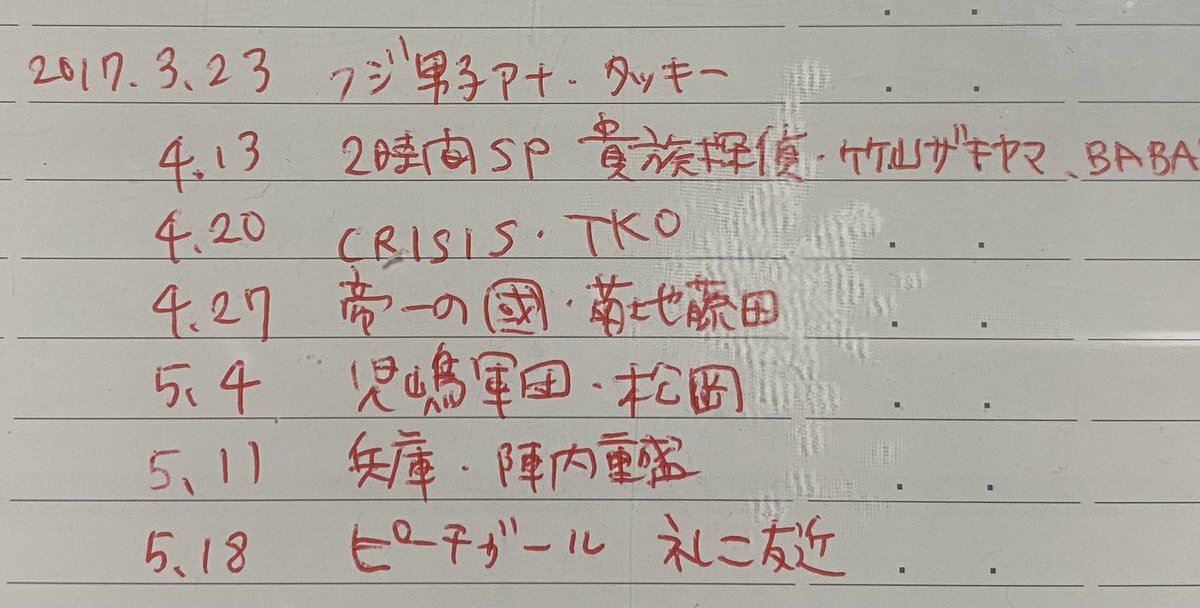 2017.3.23 フジ男子アナ・タッキー
4.13 2時間SP 貴族探偵・竹山ザキヤマ、BABA
4.20 CRISIS・TKO
4.27 帝一の國・菊地藤田
5.4 児嶋軍団・松岡
5.11 兵庫・陣内重盛
5.18 ピーチガール 礼二友近